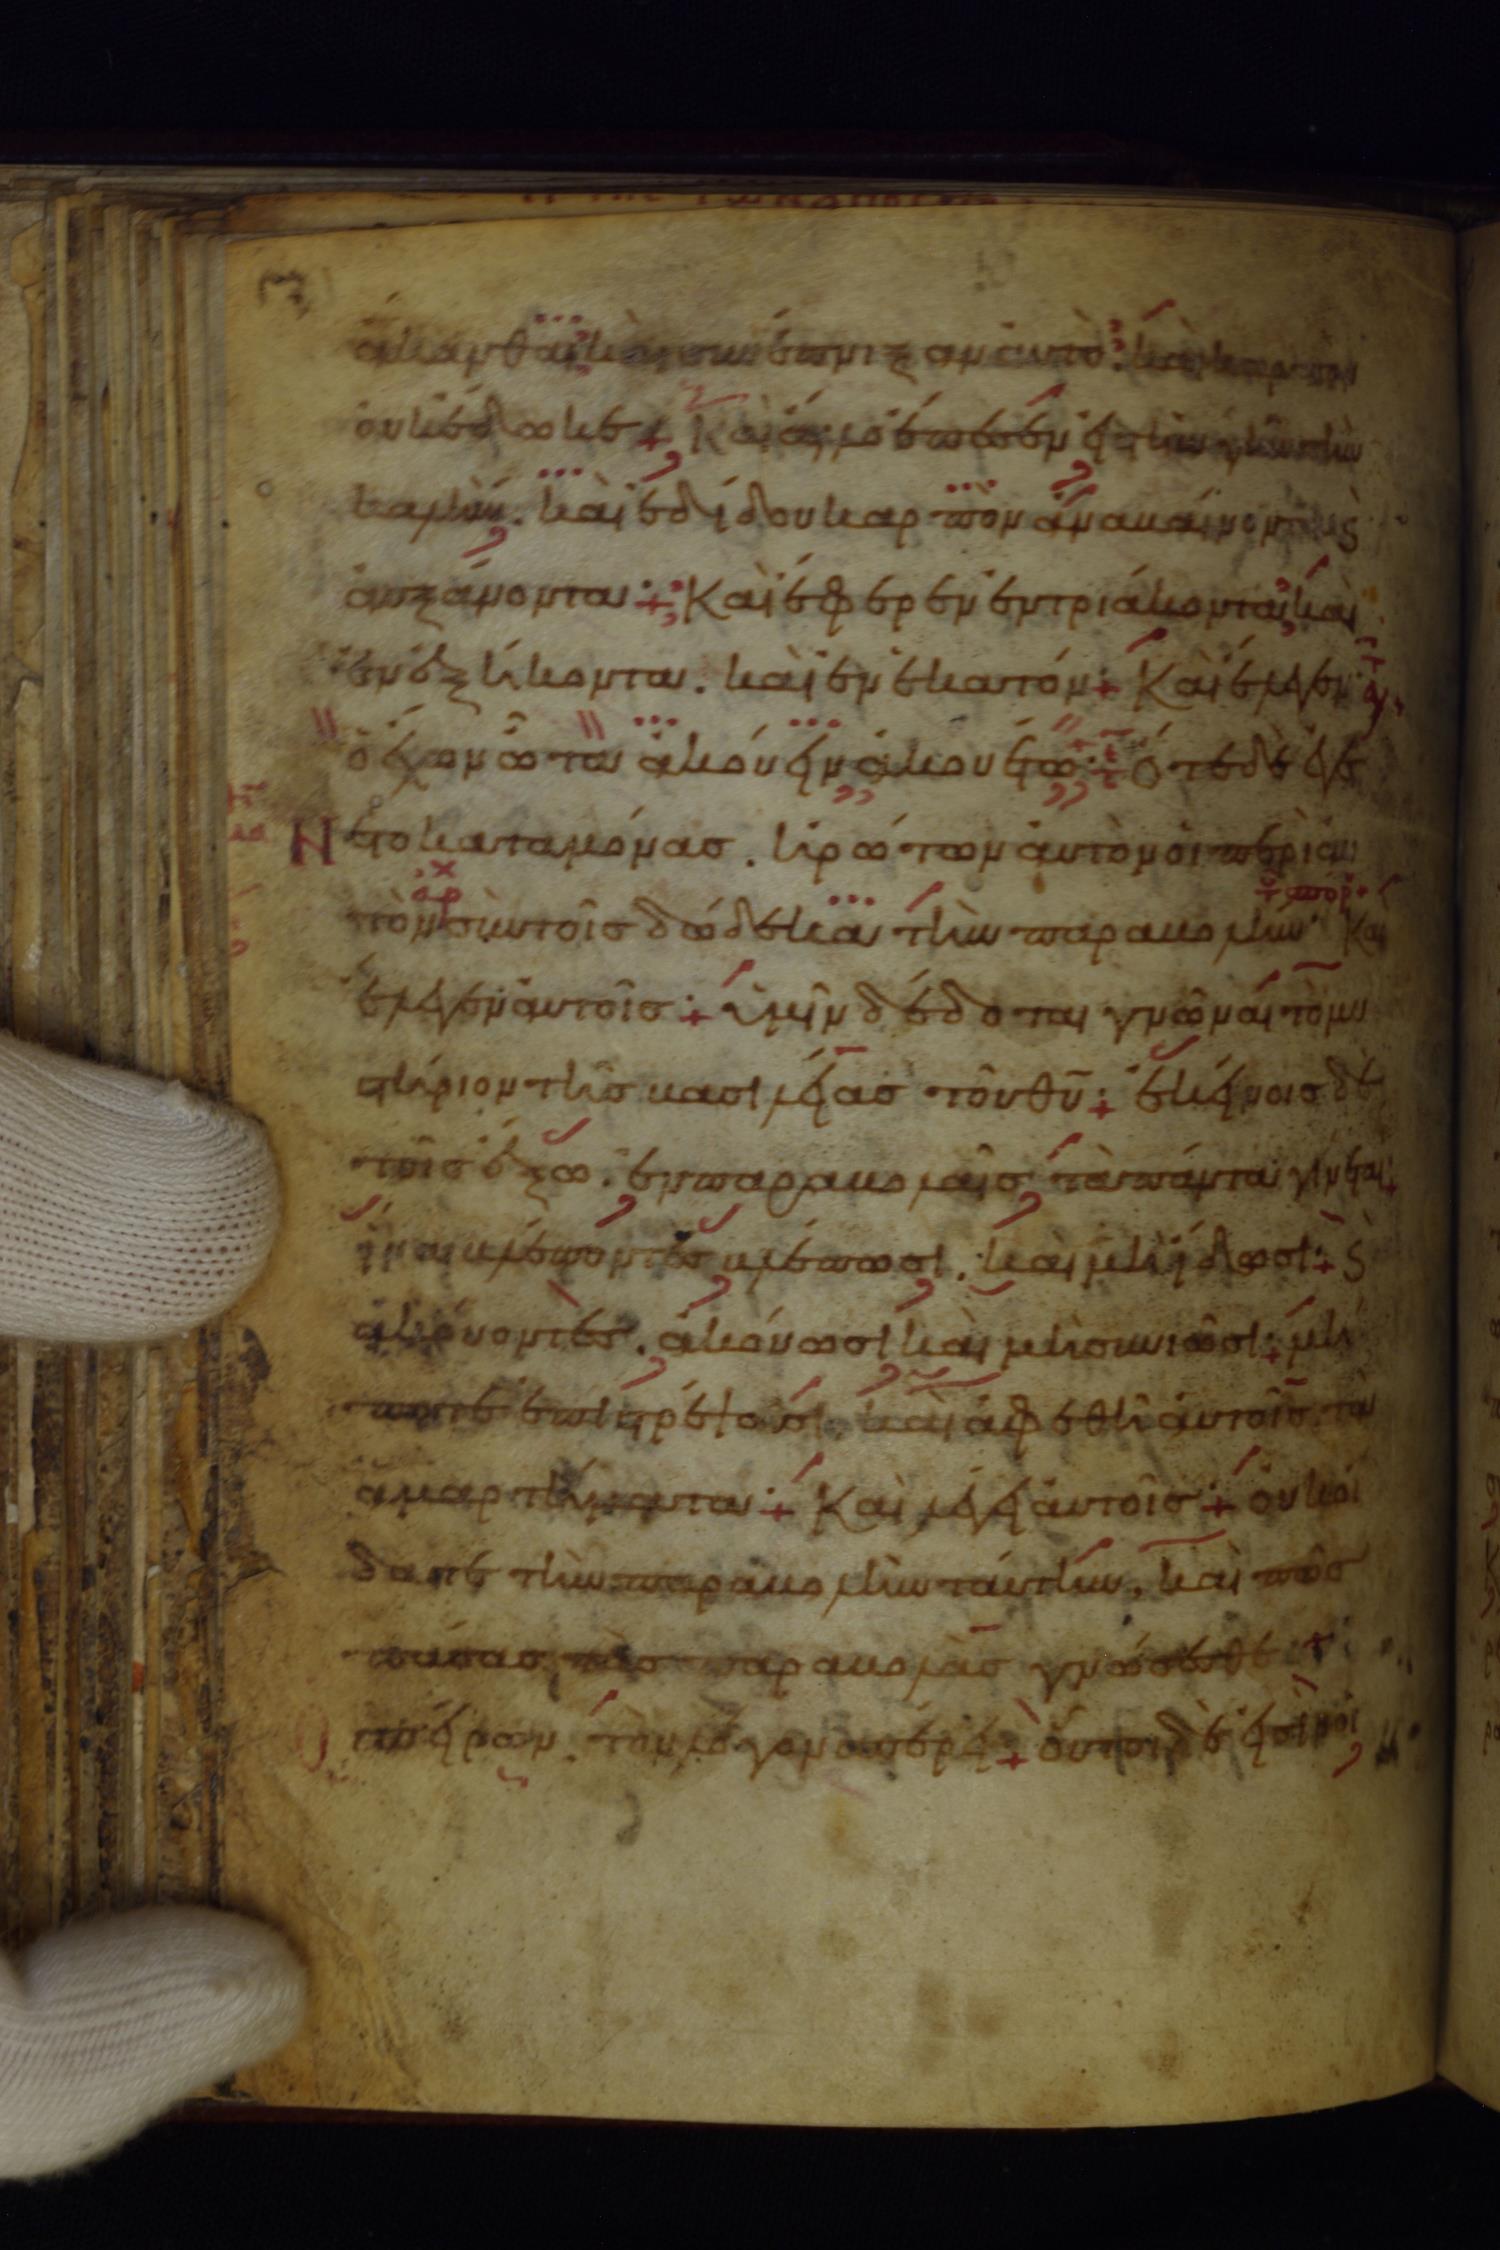 ἄκανθαι καὶ συνέπνιξαν αὐτὸ· καὶ καρπὸν
οὐκ ἔδωκε+ Καὶ ἄλλο ἔπεσεν εἰς τὴν γῆν τὴν
καλήν. καὶ ἐδίδου καρπὸν ἀναβαίνοντα ϛ
αὐξάνοντα:+ Καὶ ἔφερεν ἐν τριάκοντα· καὶ
ἐν ἑξήκοντα. καὶ ἐν ἑκατόν:+ Καὶ ἔλεγεν
ὁ ἔχων ὦτα ἀκούειν ἀκουέτω:+ ὅτε δὲ ἐγέ
Νετο καταμόνας. ἠρώτων αὐτὸν οἱ περὶ αὐ
τὸν σὺν τοῖς δώδεκα τὴν παραβολήν· Καὶ
ἔλεγεν αὐτοῖς:+ ὑμῖν δέδοται γνῶναι τὸ μυ
στήριον τῆς βασιλείας τοῦ θυ:+ ἐκείνοις δὲ
τοῖς ἔξω. ἐν παραβολαῖς τὰ πάντα γίνεται:+
ἵνα βλέποντες βλέπωσι. καὶ μὴ ἴδωσι:+ ϛ
ἀκούοντες. ἀκούωσι καὶ μὴ συνιῶσι:+ μή
ποτε ἐπιστρέψωσι. καὶ ἀφεθῇ αὐτοῖς τὰ
ἁμαρτήματα:+ Καὶ λέγει αὐτοῖς:+ οὐκ οἴ
δατε τὴν παραβολὴν ταύτην. καὶ πῶς
πάσας τὰς παραβολὰς γνώσεσθε+
Ὁ σπείρων. τὸν λόγον σπείρει:+ οὗτοι δέ εἰσὶν οἱ